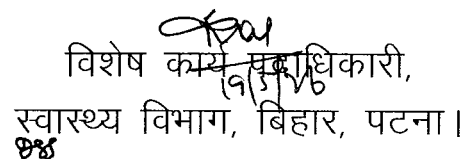 विशेष कार्य पदाधिकारी,
स्वास्थ्य विभाग, बिहार, पटना।